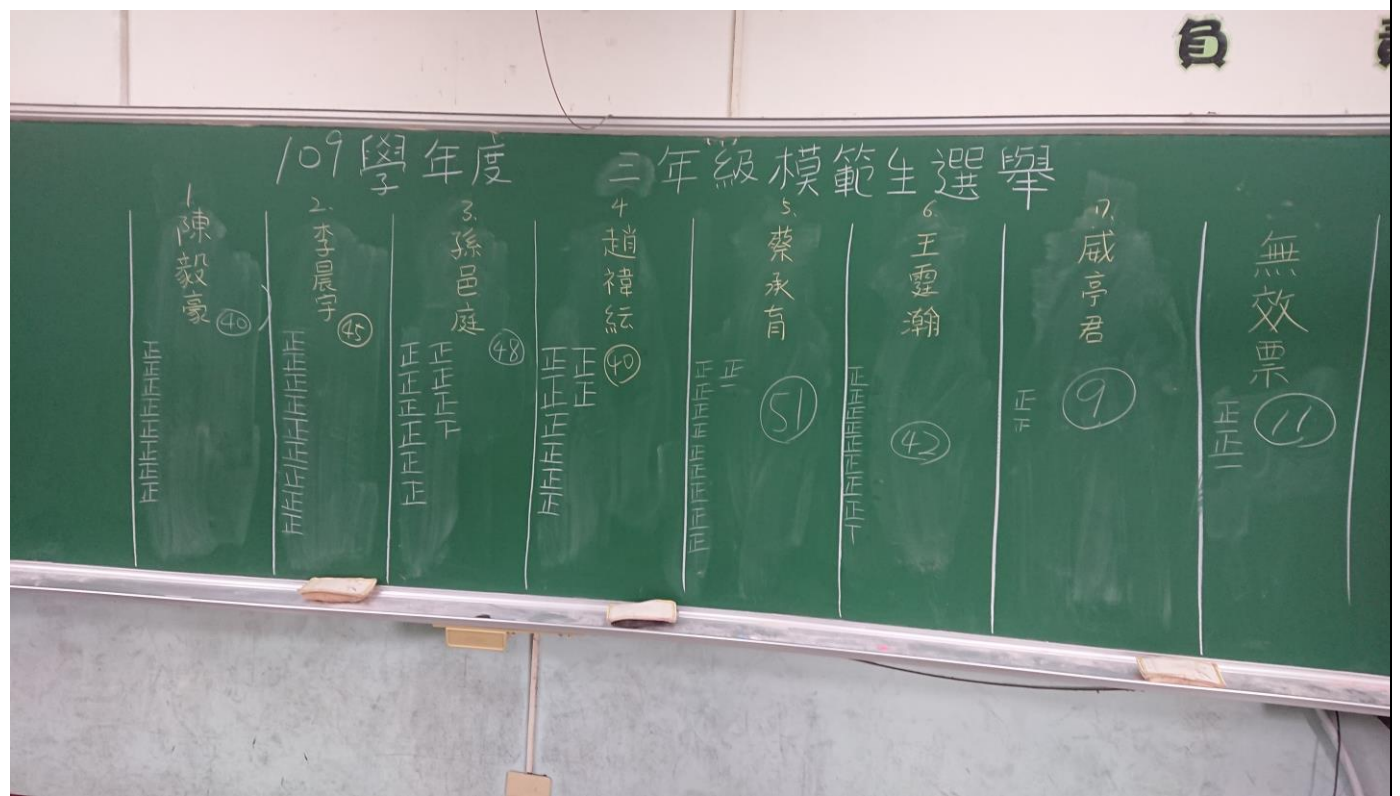 負
109學年度 三年級模範生選舉
1.
陳毅豪
40
正正正正正正正正
2.
李晨宇
45
正正正正正正正正正
3.
孫邑庭
48
正正正正正正
正正正下
4
趙禕紜
40
正正正正正正
正正
5.
蔡承育
51
正正正正正正正正正
正一
6.
王霆瀚
42
正正正正正正正正丅
7.
威亭君
9
正
無效票
11
正正一